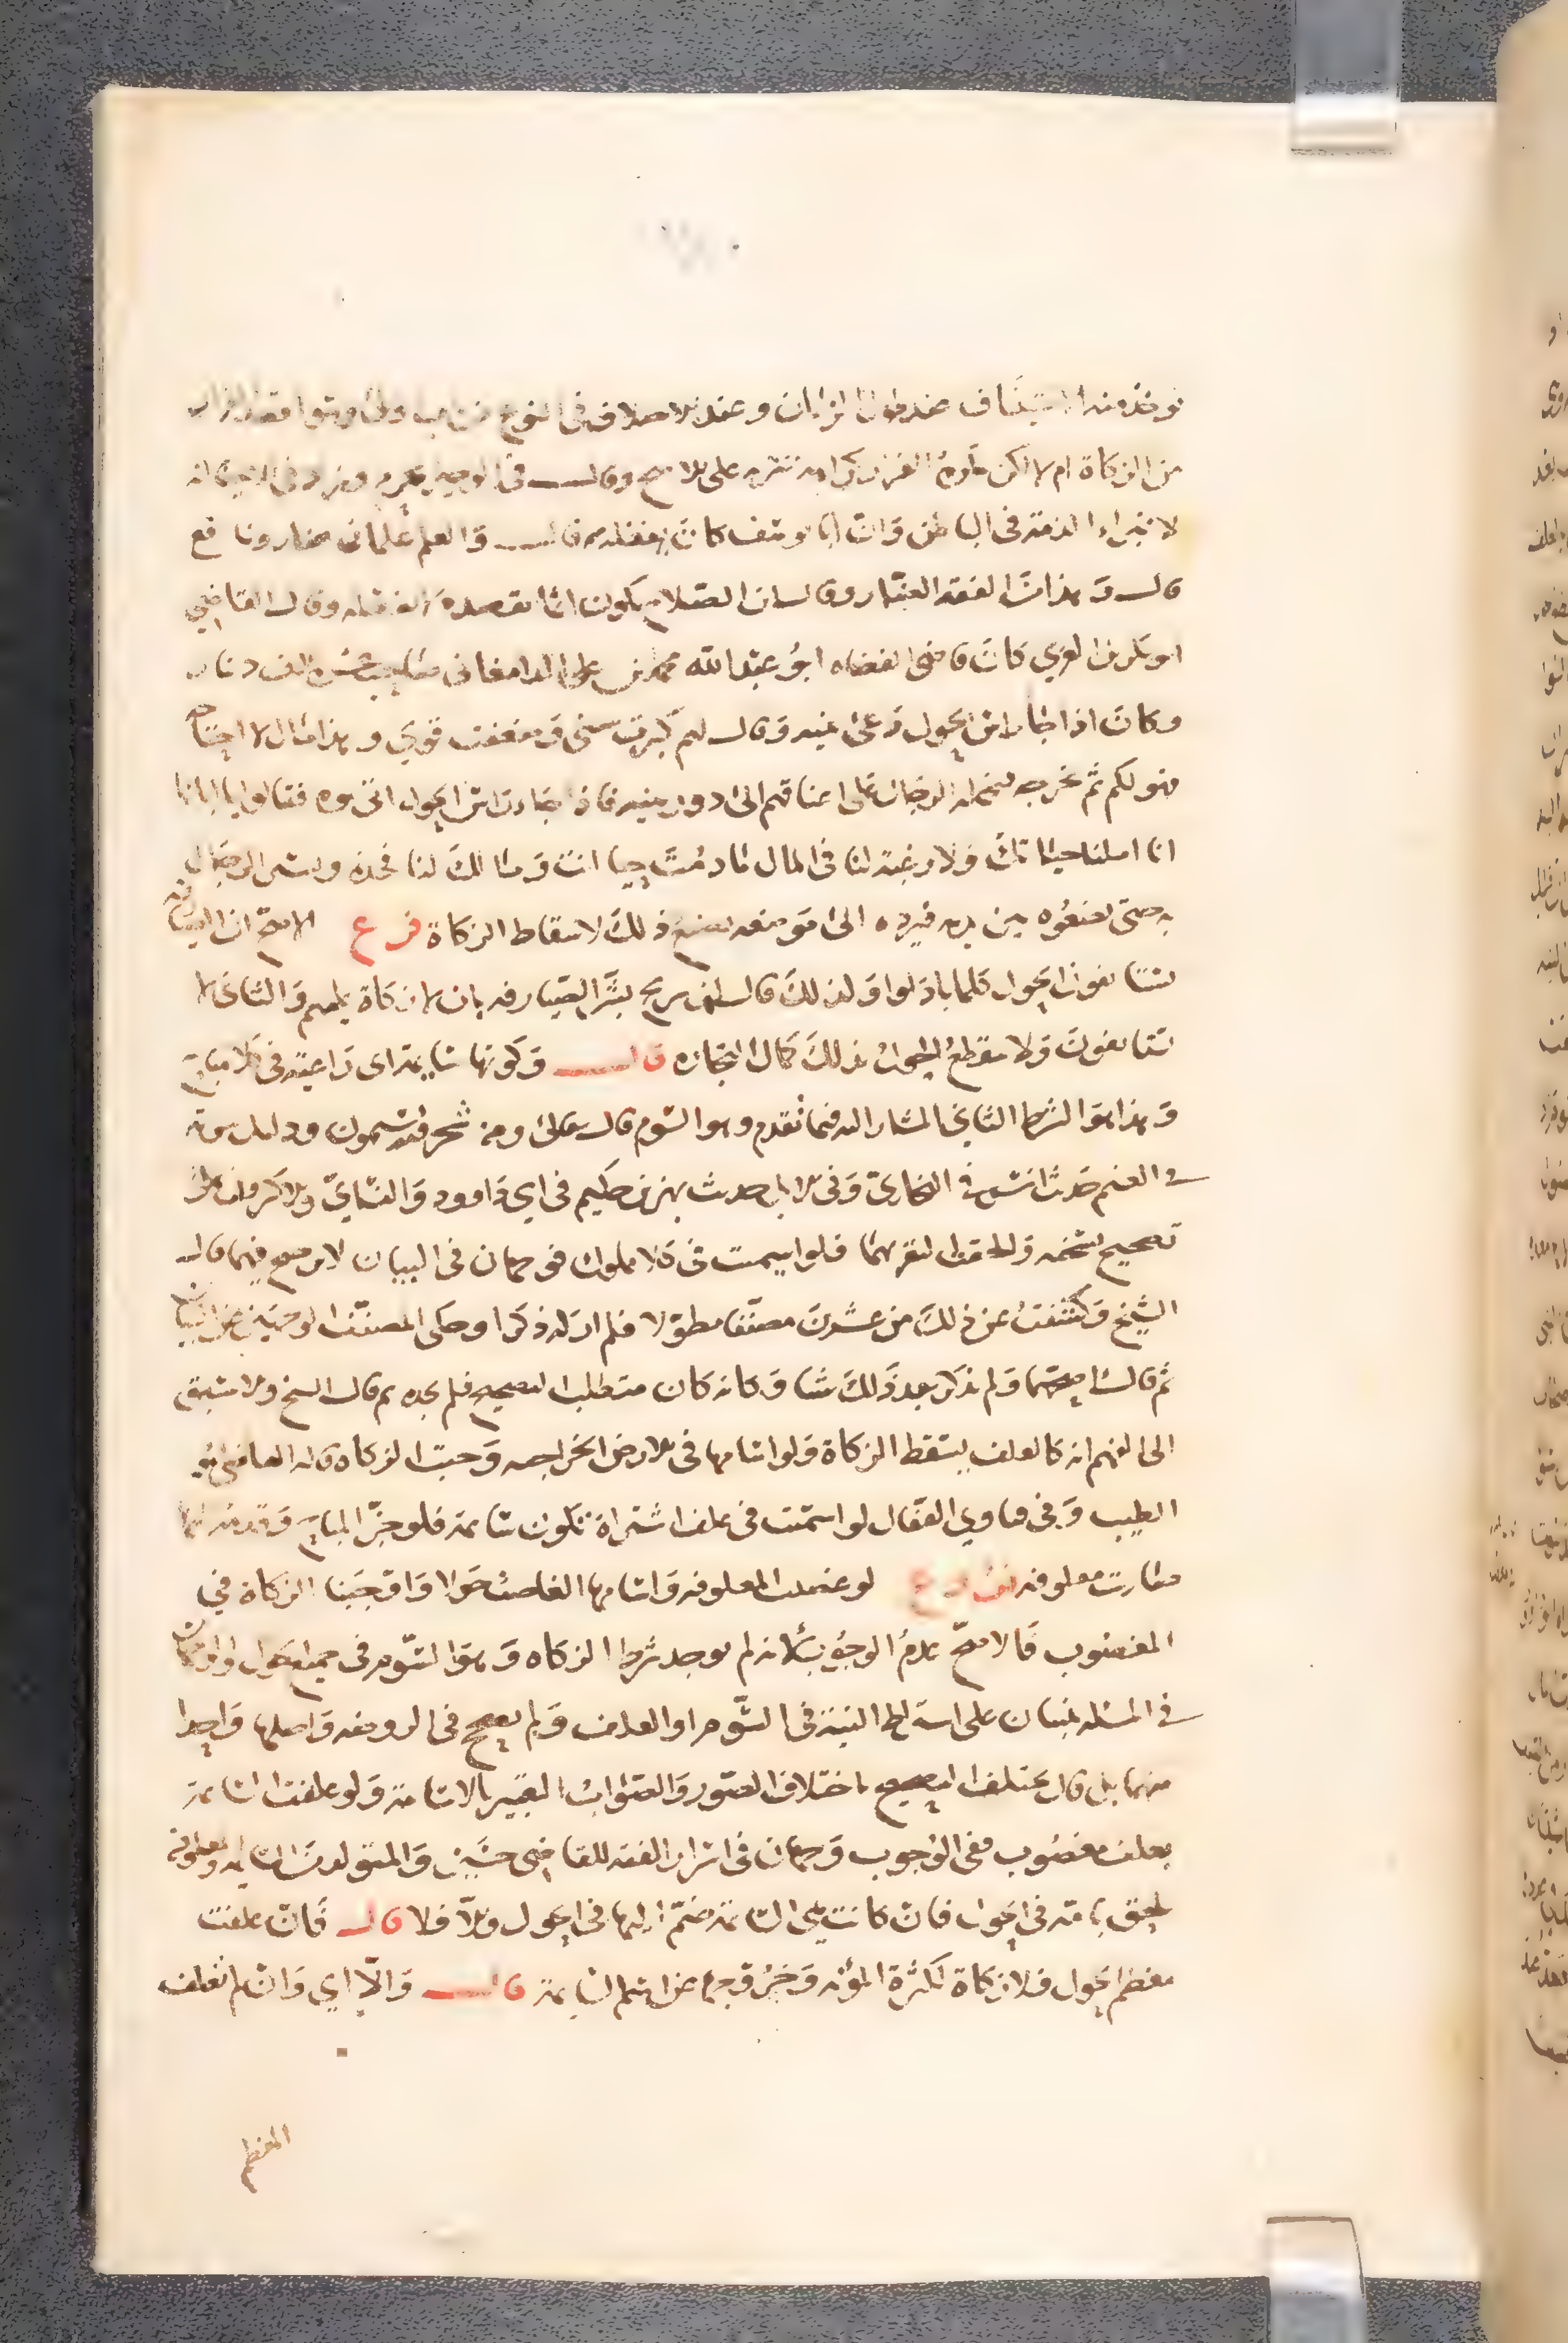 يؤخذ منه الاستئناف عند طول الزمان وعند الاختلاف في النوع
من الزكاة أم لا لكن يكره الفرار كراهة تنزيه على الأصح وقال في الوجيز يحرم وزاد في الإحياء أنه
لا تبرأ الذمة في الباطن وأن أبا يوسف كان يفعله قال والعلم علمان ضار ونافع
قال وهذا من الفقه الضار وقال ابن الصلاح يكون آثما بقصده لا بفعله وقال القاضي
أبو بكر بن العربي كان قاضي القضاة أبو عبد الله محمد بن علي الدامغاني صاحب عشرة آلاف دينار
وكان إذا جاء رأس الحول دعى بنيه وقال لهم كبرت سني وضعفت قوتي وهذا مال لا أحتاجه
فهو لكم ثم يخرجه فيحمله الرجال على أعناقهم إلى دور بنيه فإذا جاء رأس الحول أتوه فقالوا يا أبانا
إنا أملنا حياتك ولا رغبة لنا في المال ما دمت حيا أنت ومالك لنا فخذه ويسير الرجال
به حتى يضعوه بين يديه فيرده إلى موضعه يصنع ذلك لاسقاط الزكاة فرع الأصح أن الصيارفة
يستأنفون الحول كلما بادلوا ولذلك قال ابن سريج بشر الصيارفة بأن لا زكاة عليهم والثاني لا
يستأنفون ولا ينقطع الحول بذلك كمال التجارة قال وكونها سائمة أي راعية في كلأ مباح
وهذا هو الشرط الثاني المشار إليه فيما تقدم وهو السوم قال تعالى ومنه شجر فيه تسيمون ودليل سومه
في الغنم حديث أنس في البخاري وفي الإبل حديث بهز بن حكيم في أبي داوود والنسائي والحاكم وقال
صحيح وألحقنا البقر بهما فلو أسيمت في كلأ مملوك فوجهان في البيان لا ترجيح فيهما قال
الشيخ وكشفت عن ذلك من عشرين مصنفا مطولا فلم أر له ذكرا وحكى المصنف الوجهين عن البيان
ثم قال أصحهما ولم يذكر بعد ذلك شيئا وكأنه كان متطلبا لتصحيح فلم يجده ثم قال الشيخ والأسبق
إلى الفهم أنه كالعلف يسقط الزكاة ولو أسامها في الأرض الخراجية وجبت الزكاة قاله القاضي أبو
الطيب وفي فتاوي القفال لو أسيمت في علف اشتراه تكون سائمة فلو جز المباح وقدمه لها
صارت معلوفة فرع لو غصبت المعلوفة وأسامها الغاصب حولا وأوجبنا الزكاة في
المغصوب فالأصح عدم الوجوب لأنه لم يوجد شرط الزكاة وهو السوم في جميع الحول
في المسئلة ينبنيان على اشتراط النية في السوم أو العلف ولم يصحح في الروضة وأصلها واحدا
منهما بل قال يختلف التصحيح باختلاف الصور والصواب التعبير بالاسامة ولو علفت السائمة
بعلف مغصوب ففي الوجوب وجهان في أسرار الفقه للقاضي حسين والمتولد من السائمة والمعلوفة
يلحق بأمه في الحول فإن كانت هي السائمة ضم إليها في الحول وإلا فلا قال فإن علفت
معظم الحول فلا زكاة لكثرة المؤنة وخروجها عن اسم السائمة قال وإلا أي وإن لم تعلف
المعظم